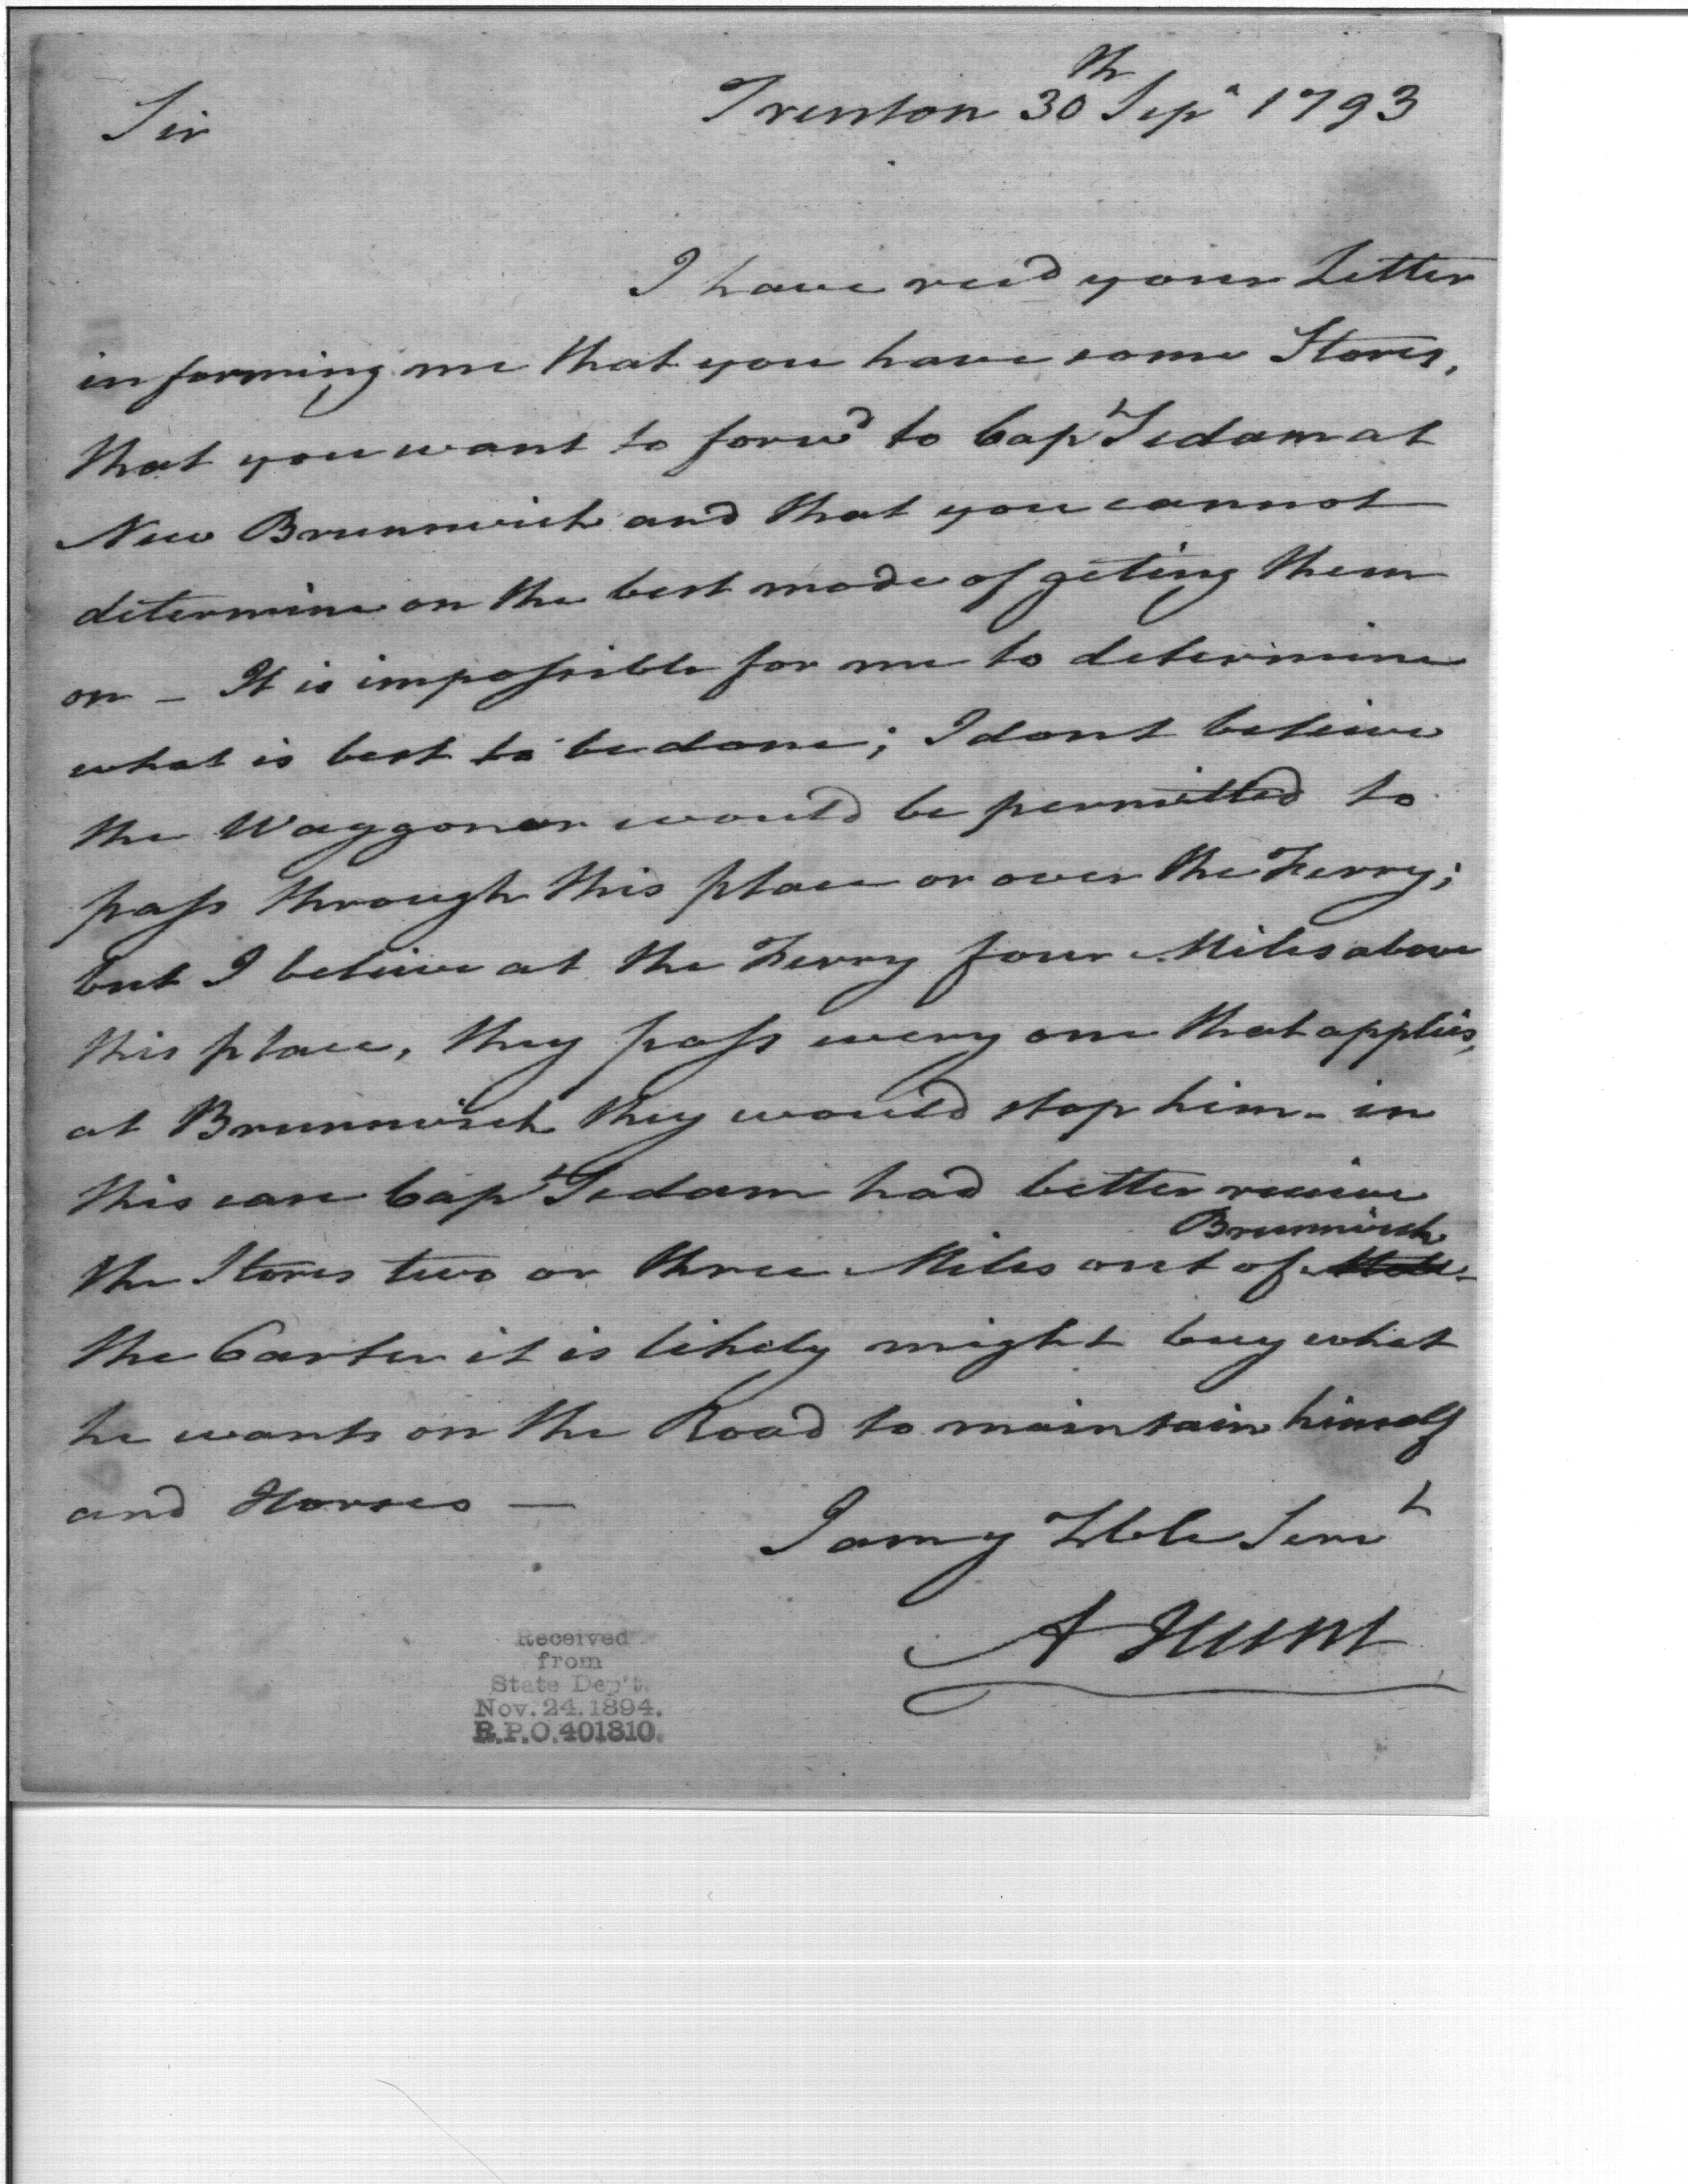 Sir
Trenton 30th Sepr 1793
I have recd your Letter
informing me that you have some Stores,
that you want to forwd to Capt Pedam at
New Brunswick and that you cannot
determine on the best mode of geting them
on – It is impossible for me to determine
what is best to be done; I dont believe
the Waggoner would be permitted to
pass through this place or over the Ferry;
but I believe at the Ferry four Miles above
this place, they pass every one that applies,
at Brunswick they would stop him – in
this case Capt Pedam had better receive
Brunswick
the Stores two or three Miles out of
the Carter it is likely might buy what
he wants on the Road to maintain himself
and Horses —
I am y Hble Servt
A Hunt
Received
from
State Dep't.
Nov. 24. 1894.
R.P.O. 401810.